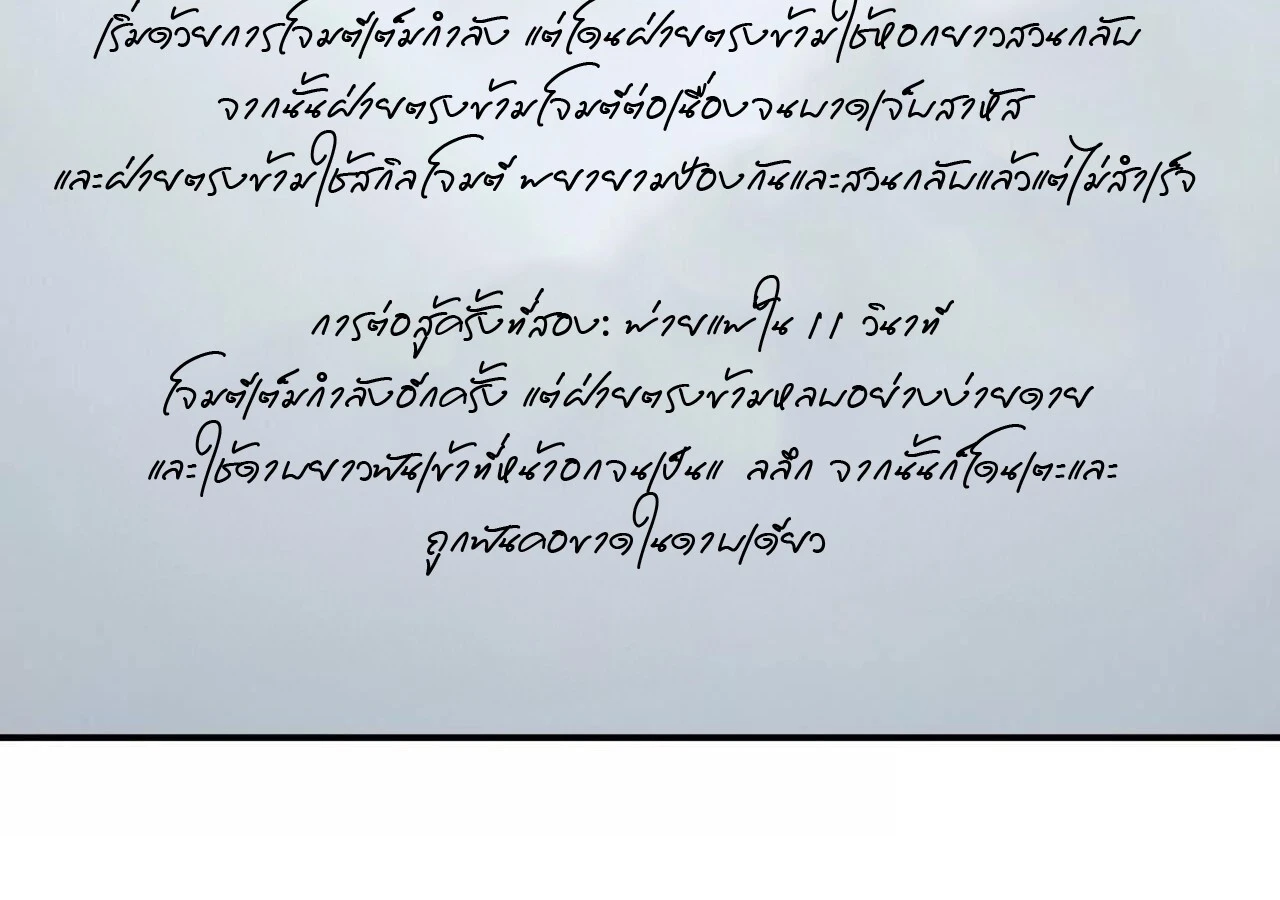 เริ่มด้วยการโจมตีเต็มกำลัง แต่โดนฝ่ายตรงข้ามใช้หอกยาวสวนกลับ
จากนั้นฝ่ายตรงข้ามโจมตีต่อเนื่องจนบาดเจ็บสาหัส
และฝ่ายตรงข้ามใช้สกิลโจมตี พยายามป้องกันและสวนกลับแล้วแต่ไม่สำเร็จ
การต่อสู้ครั้งที่สอง: พ่ายแพ้ใน 11 วินาที
โจมตีเต็มกำลังอีกครั้ง แต่ฝ่ายตรงข้ามหลบอย่างง่ายดาย
และใช้ดาบยาวฟันเข้าที่หน้าอกจนเป็นแ ลลึก จากนั้นก็โดนเตะและ
ถูกฟันคอขาดในดาบเดียว